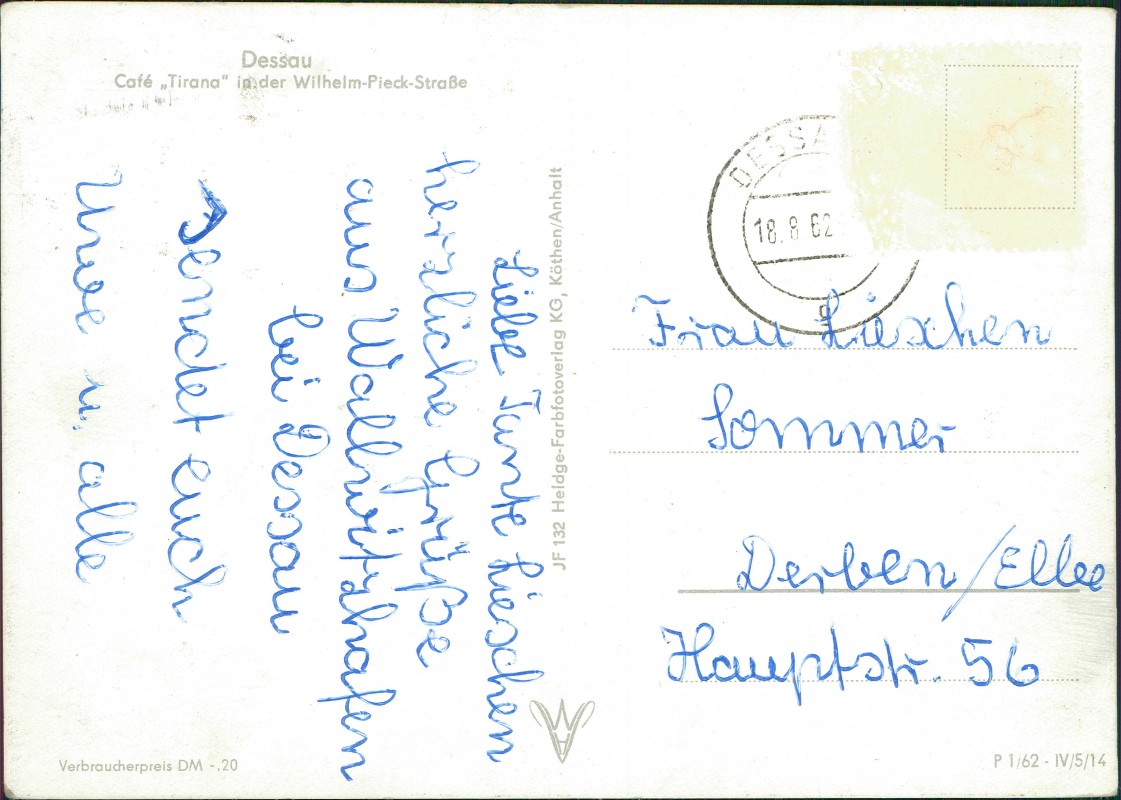 Dessau
Café „Tirana“ in der Wilhelm-Pieck-Straße
Liebe Tante Lieschen
herzliche Grüße
aus Wallwitzhafen
bei Dessau
sendet euch
Uwe u. alle
JF 132 Heldge-Farbfotoverlag KG, Köthen/Anhalt
DESSA
18.8.62
g
Frau Lieschen
Sommer
Derben/Elbe
Hauptstr. 56
Verbraucherpreis DM -.20
P 1/62 · IV/5/14